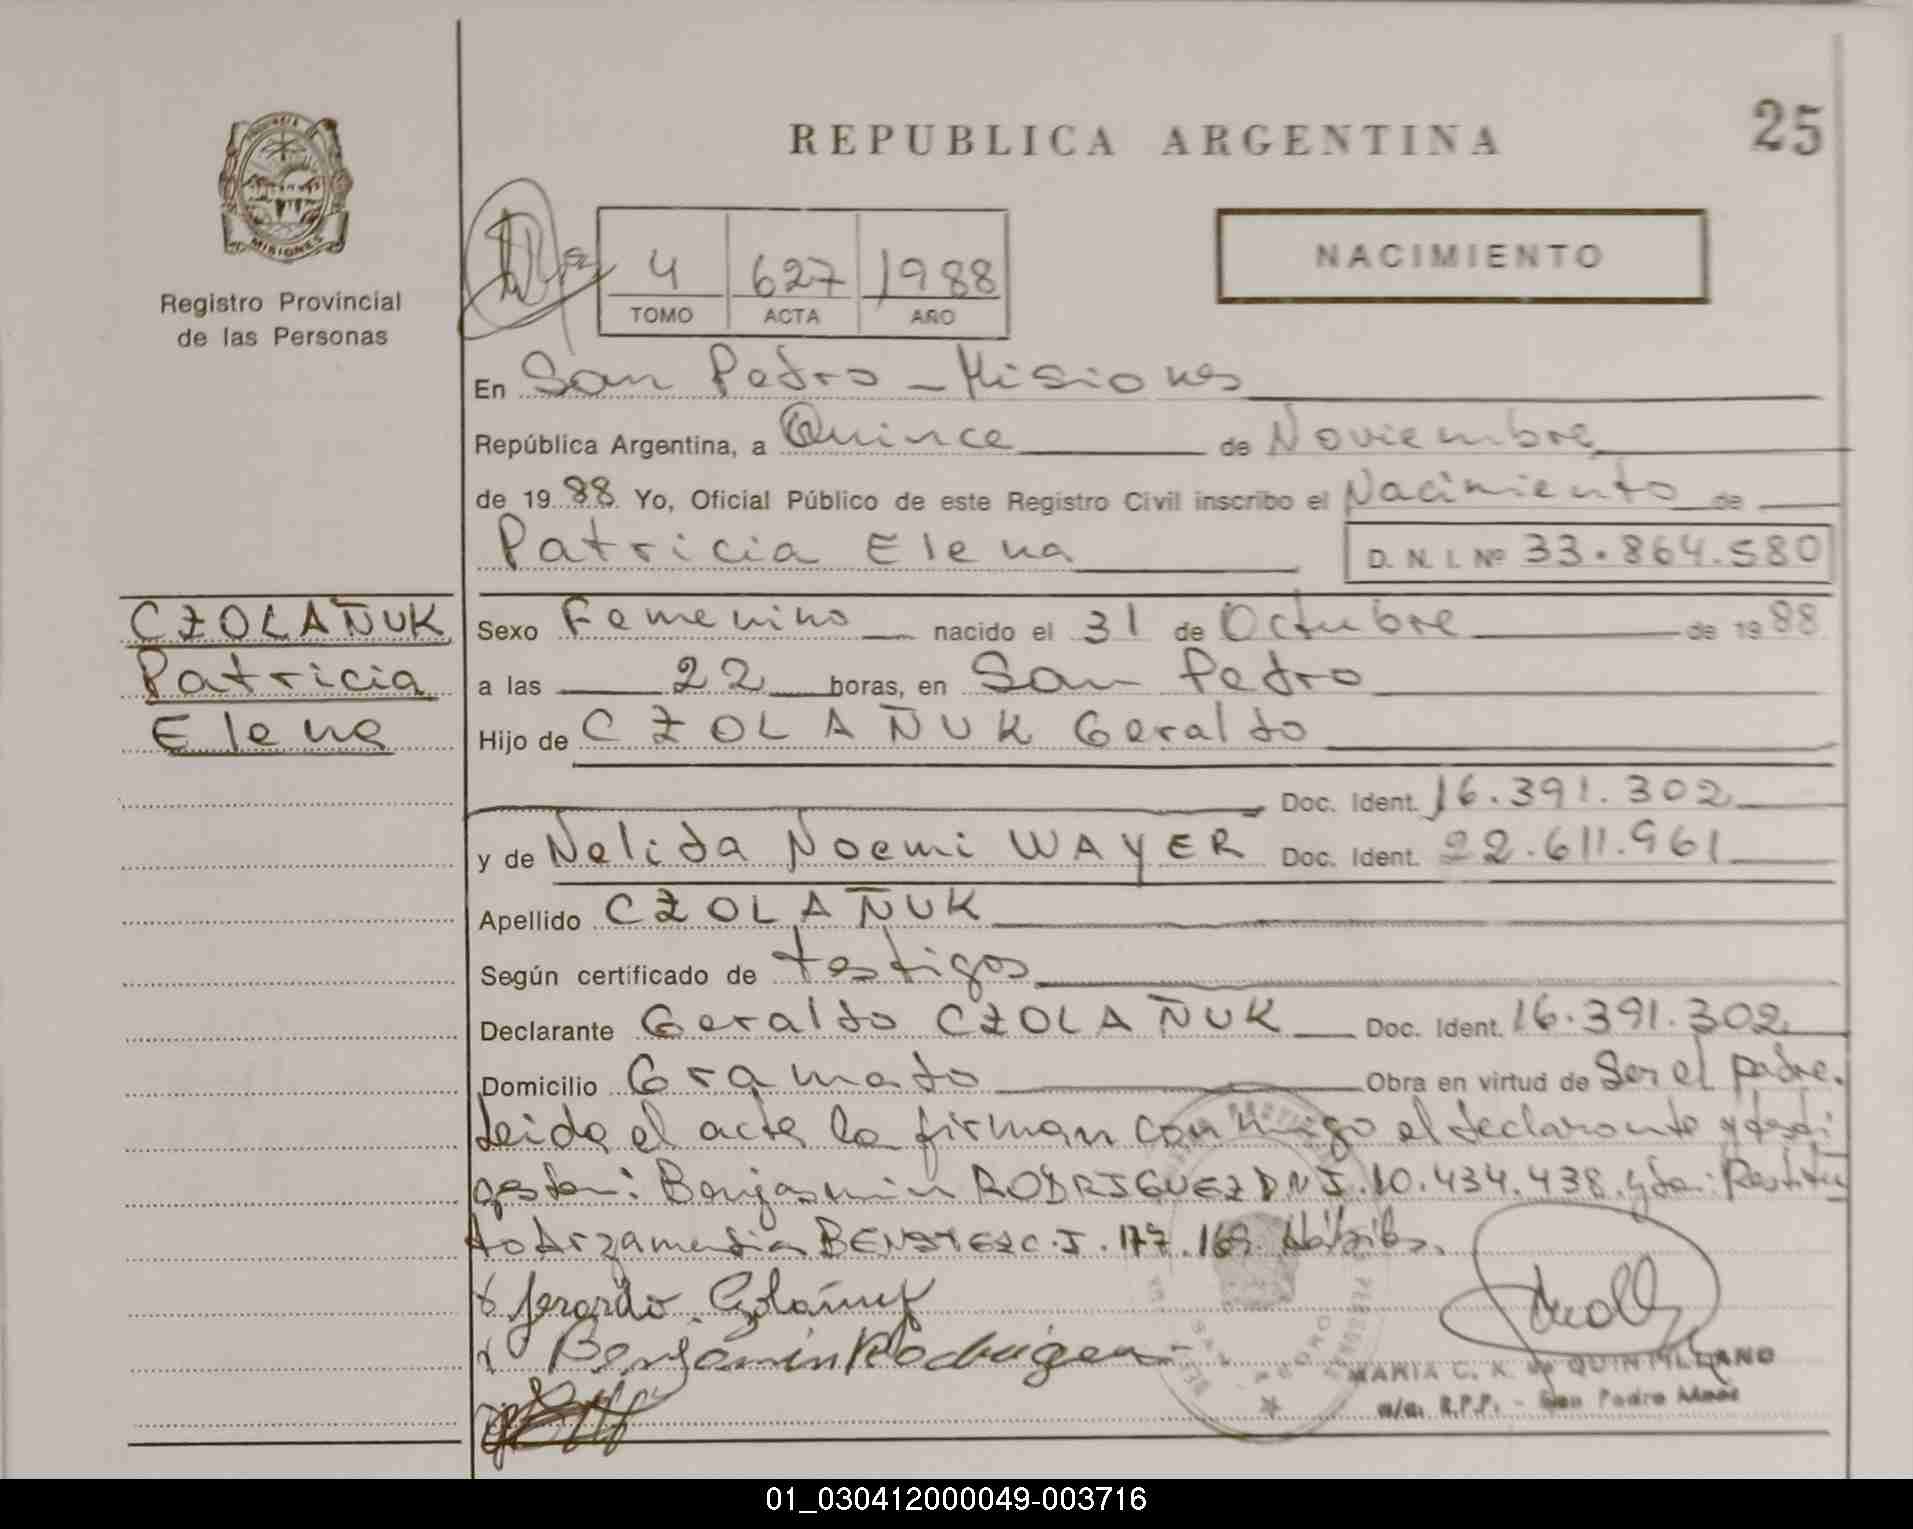 REPUBLICA ARGENTINA
25
PROVINCIA
MISIONES
Registro Provincial
de las Personas
4 627 1988
TOMO ACTA AÑO
NACIMIENTO
En San Pedro - Misiones
República Argentina, a Quince de Noviembre
de 1988 Yo, Oficial Público de este Registro Civil inscribo el Nacimiento de
Patricia Elena D. N. I. Nº 33.864.580
CZOLAÑUK
Patricia
Elena
Sexo Femenino nacido el 31 de Octubre de 1988
a las 22 horas, en San Pedro
Hijo de CZOLAÑUK Geraldo
Doc. Ident. 16.391.302
y de Nelida Noemi WAYER Doc. Ident. 22.611.961
Apellido CZOLAÑUK
Según certificado de testigos
Declarante Geraldo CZOLAÑUK Doc. Ident. 16.391.302
Domicilio Gramado Obra en virtud de Ser el padre.
Leida el acta la firman conmigo el declarante y testi
gos don: Benjamin RODRIGUEZ DNI. 10.434.438. y don: Restitu
to Arzamendia BENITEZ C.I. 177.169
Gerardo
Benjamin Rodriguez
MARIA C. A. de QUINTILLANO
a/c. R.P.P. - San Pedro Mnes
01_030412000049-003716